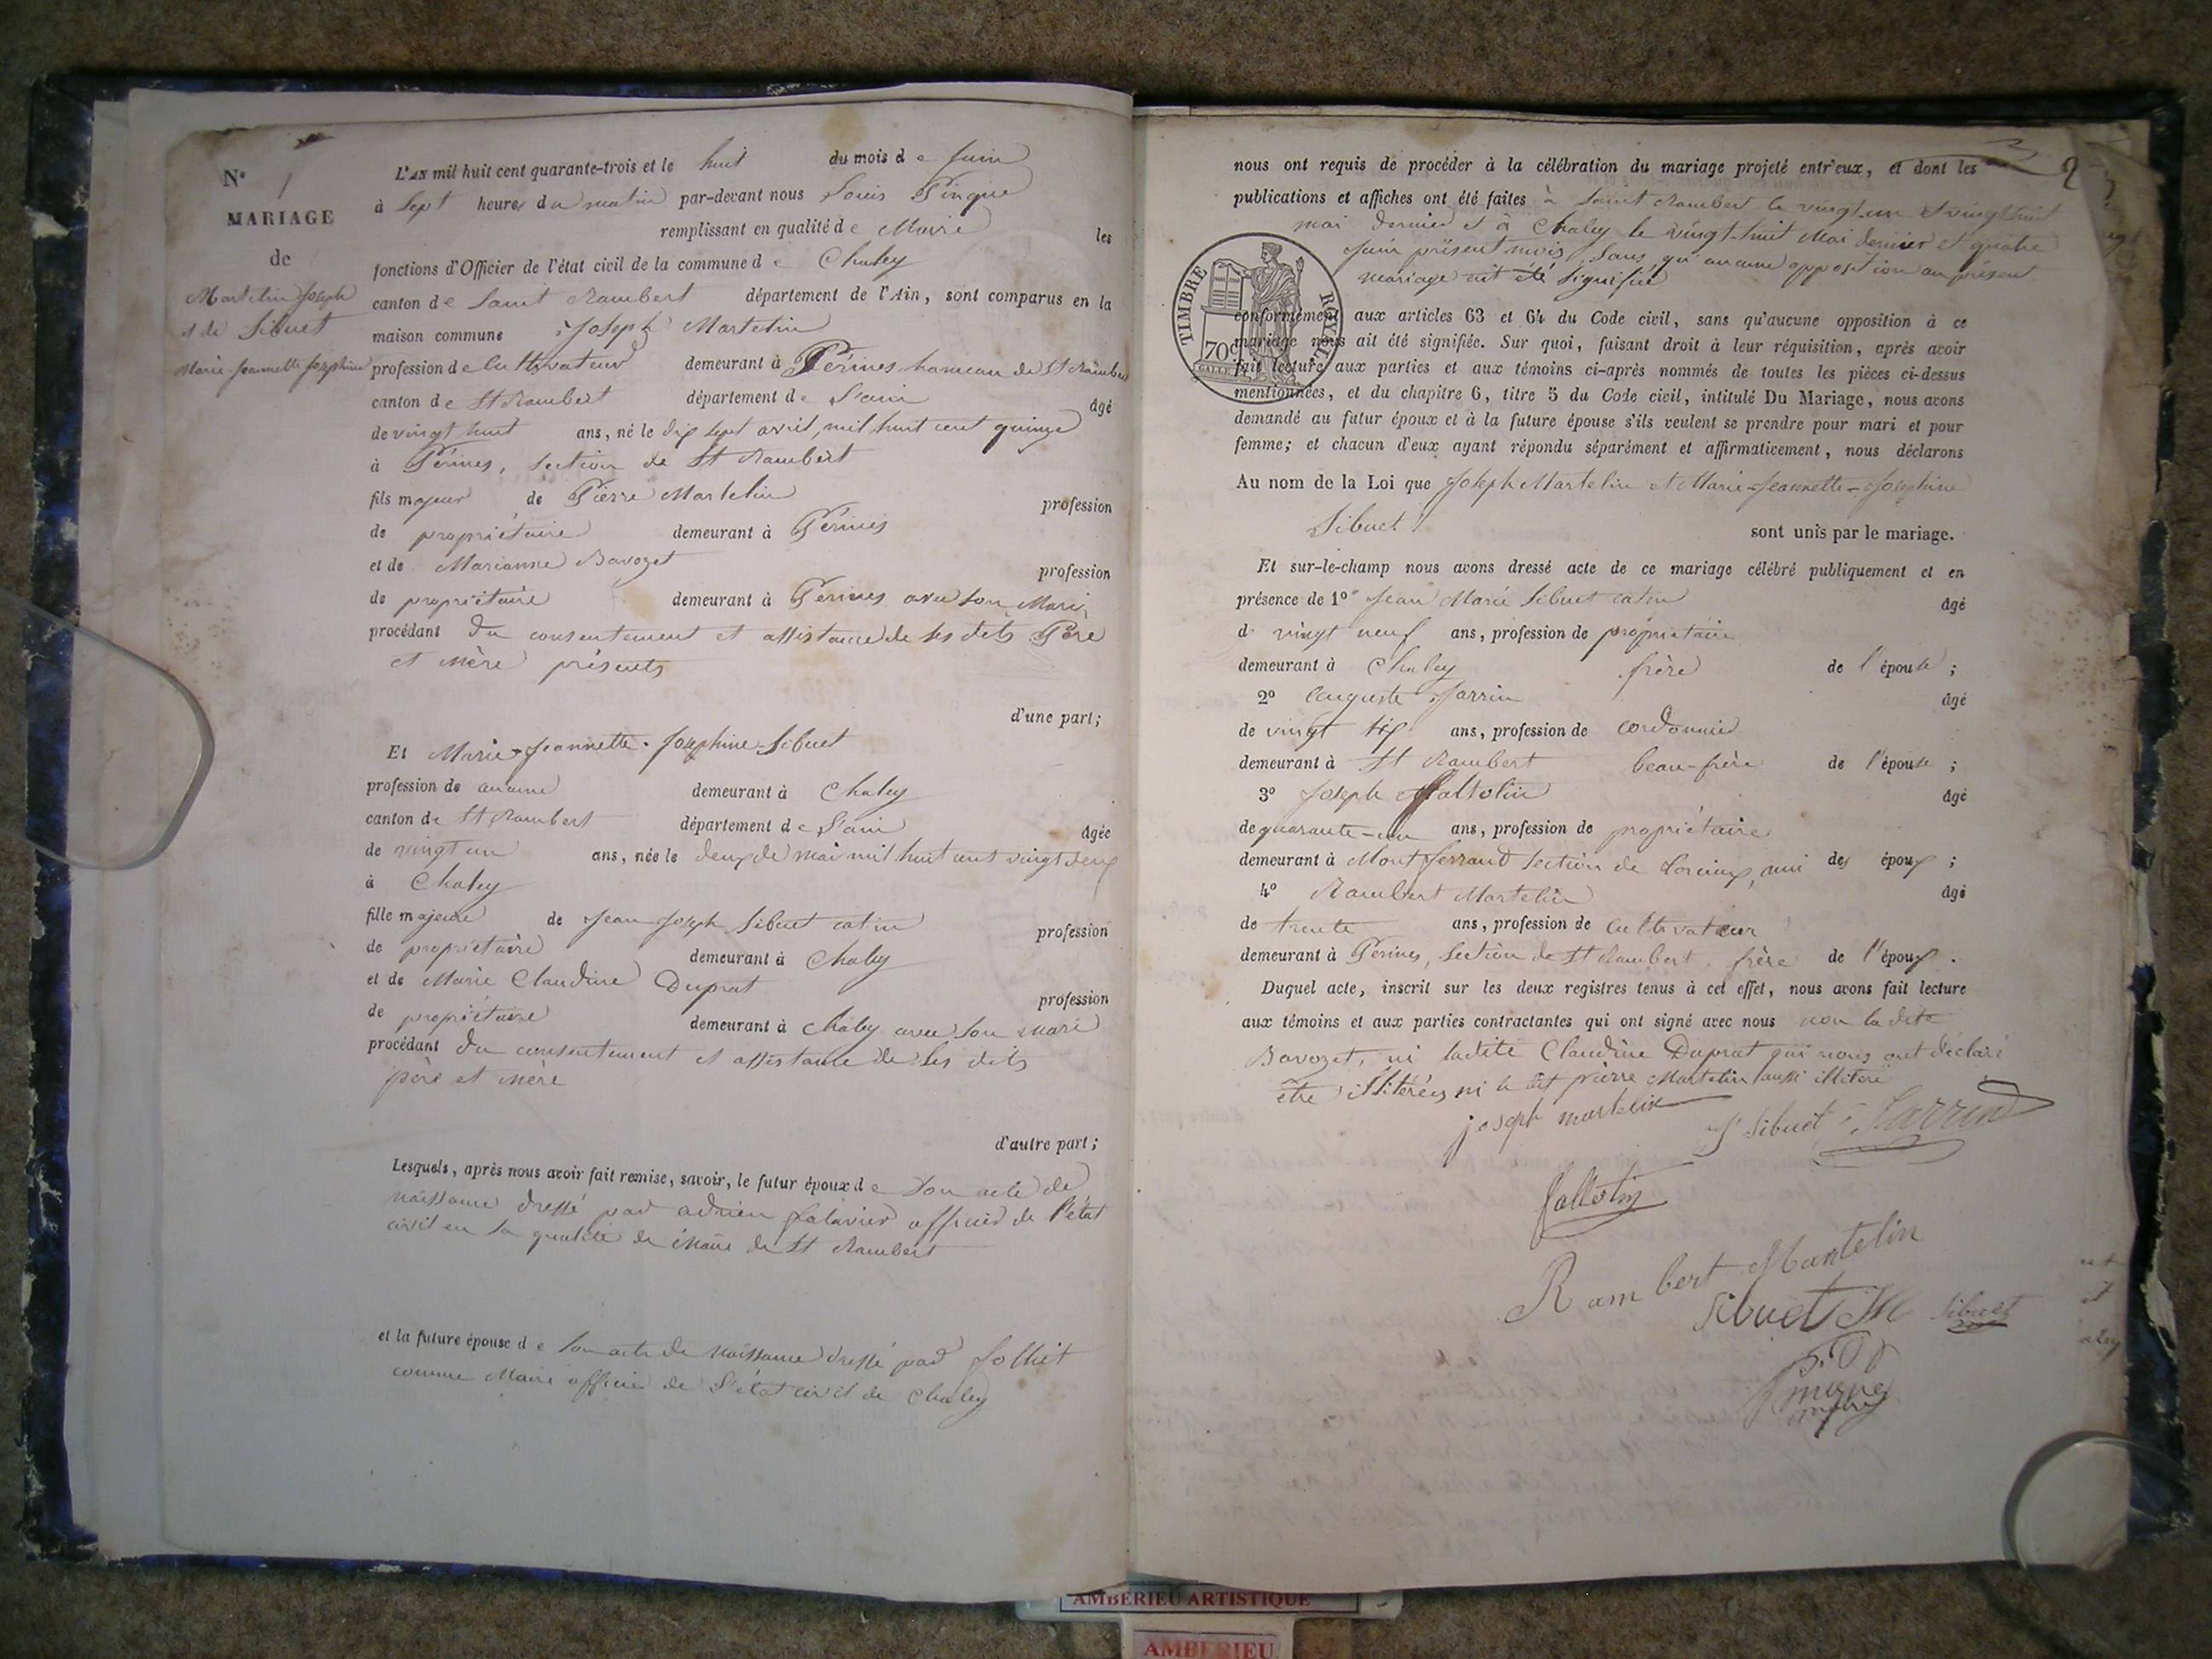 N° 1
MARIAGE
de
Martelin Joseph
et de Sibuet
Marie-Jeannette Josephine
L'AN mil huit cent quarante-trois et le huit du mois de Juin
à Sept heures du matin par-devant nous Louis Pingue
remplissant en qualité de Maire les
fonctions d'Officier de l'état civil de la commune de Chaley
canton de Saint Rambert département de l'Ain, sont comparus en la
maison commune Joseph Martelin
profession de Cultivateur demeurant à Pérines hameau de St Rambert
canton de St Rambert département de L'ain âgé
de vingt huit ans, né le dix sept avril, mil huit cent quinze
à Pérines, Section de St Rambert
fils majeur de Pierre Martelin profession
de propriétaire demeurant à Pérines
et de Marianne Bavozet profession
de propriétaire demeurant à Pérines avec son Mari,
procédant du consentement et assistance de ses dits Père
et Mère présents
d'une part;
Et Marie-Jeannette-Josephine-Sibuet
profession de aucune demeurant à Chaley
canton de St Rambert département de L'ain âgée
de vingt un ans, née le deux de mai mil huit cent vingt deux
à Chaley
fille majeure de Jean Joseph Sibuet catin profession
de propriétaire demeurant à Chaley
et de Marie Claudine Duprat profession
de propriétaire demeurant à Chaley avec son mari
procédant du consentement et assistance de ses dits
père et mère
d'autre part;
Lesquels, après nous avoir fait remise, savoir, le futur époux de Son acte de
naissance dressé par adrien falavier officier de l'état
civil en sa qualité de Maire de St Rambert
et la future épouse de Son acte de naissance dressé par Jolliet
comme Maire officier de l'état civil de Chaley
nous ont requis de procéder à la célébration du mariage projeté entr'eux, et dont les
publications et affiches ont été faites à Saint Rambert le vingt un et vingt huit
mai dernier et à Chaley le vingt-huit Mai dernier et quatre
Juin présent mois, Sans qu'aucune opposition au présent
mariage ait été Signifiée
TIMBRE ROYAL
70c
conformément aux articles 63 et 64 du Code civil, sans qu'aucune opposition à ce
mariage nous ait été signifiée. Sur quoi, faisant droit à leur réquisition, après avoir
fait lecture aux parties et aux témoins ci-après nommés de toutes les pièces ci-dessus
mentionnées, et du chapitre 6, titre 5 du Code civil, intitulé Du Mariage, nous avons
demandé au futur époux et à la future épouse s'ils veulent se prendre pour mari et pour
femme; et chacun d'eux ayant répondu séparément et affirmativement, nous déclarons
Au nom de la Loi que Joseph Martelin et Marie-Jeannette-Josephine
Sibuet sont unis par le mariage.
Et sur-le-champ nous avons dressé acte de ce mariage célébré publiquement et en
présence de 1° Jean Marie Sibuet catin âgé
de vingt neuf ans, profession de propriétaire
demeurant à Chaley frère de l'épouse;
2° auguste Jarrin âgé
de vingt six ans, profession de cordonnier
demeurant à St Rambert beau-frère de l'épouse;
3° Joseph âgé
de quarante-un ans, profession de propriétaire
demeurant à Montferrand Section de Torcieux, ami des époux;
4° Rambert Martelin âgé
de trente ans, profession de Cultivateur
demeurant à Pérines, Section de St Rambert, frère de l'époux.
Duquel acte, inscrit sur les deux registres tenus à cet effet, nous avons fait lecture
aux témoins et aux parties contractantes qui ont signé avec nous non la dite
Bavozet, ni ladite Claudine Duprat qui nous ont déclaré
être illitérées ni le dit pierre Martelin aussi illiteré
joseph martelin
J Sibuet
Jarrin
Rambert Mantelin
Sibuet JM
Sibuet
AMBERIEU ARTISTIQUE
AMBERIEU